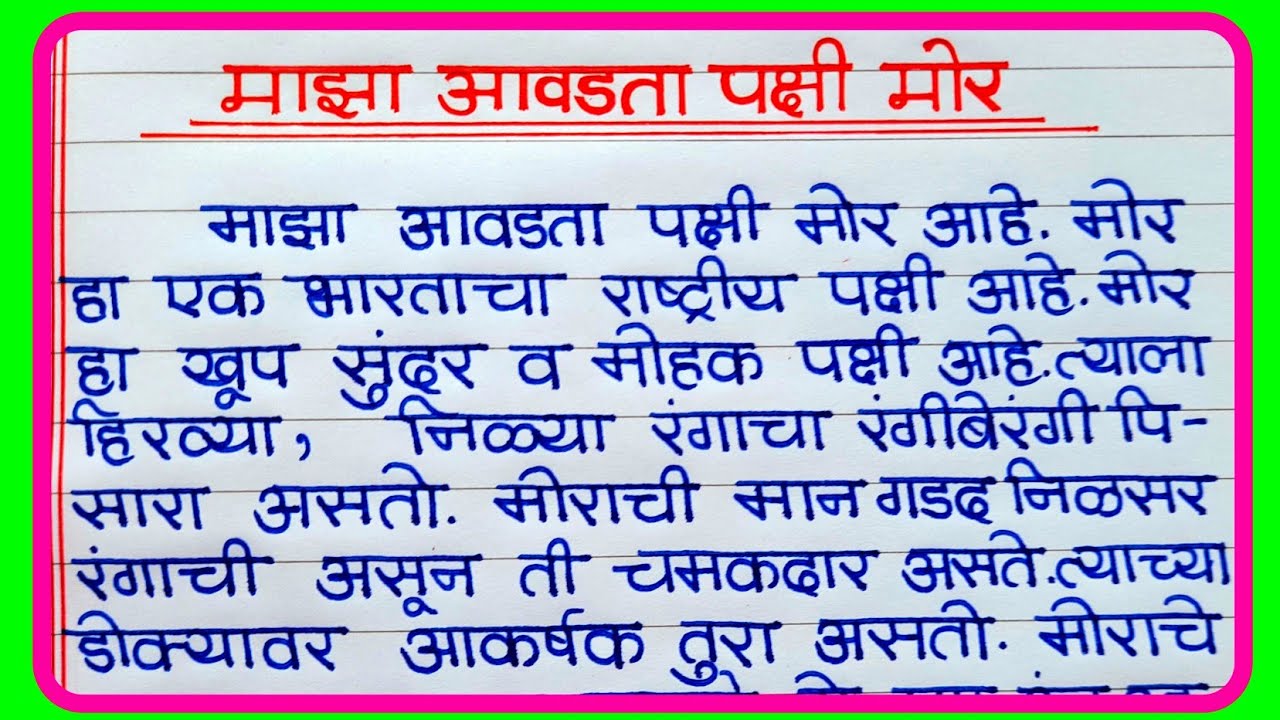 माझा आवडता पक्षी मोर
माझा आवडता पक्षी मोर आहे. मोर
हा एक भारताचा राष्ट्रीय पक्षी आहे. मोर
हा खूप सुंदर व मोहक पक्षी आहे. त्याला
हिरव्या, निळ्या रंगाचा रंगीबेरंगी पि-
सारा असतो. मोराची मान गडद निळसर
रंगाची असून ती चमकदार असते. त्याच्या
डोक्यावर आकर्षक तुरा असतो. मोराचे